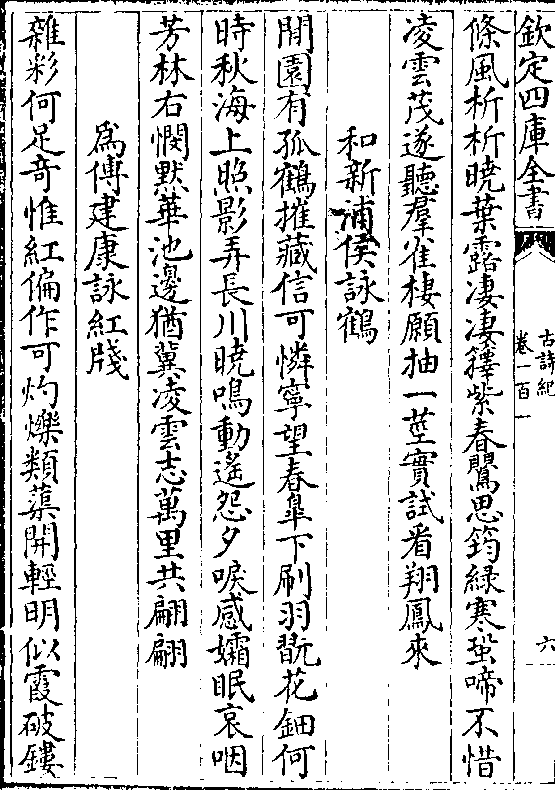 欽定四庫全書
古詩紀
卷一百一
六
條風析析曉葉露淒淒籜紫春鶯思筠緑寒蛩啼不惜
凌雲茂遂聽羣雀棲願抽一莖實試看翔鳳來
和新浦侯詠鶴
閒園有孤鶴摧藏信可憐寧望春臯下刷羽翫花鈿何
時秋海上照影弄長川曉鳴動遙怨夕唳感孀眠哀咽
芳林右憫默華池邊猶冀凌雲志萬里共翩翩
為傅建康詠紅牋
雜彩何足竒惟紅偏作可灼爍類蕖開輕明似霞破鏤